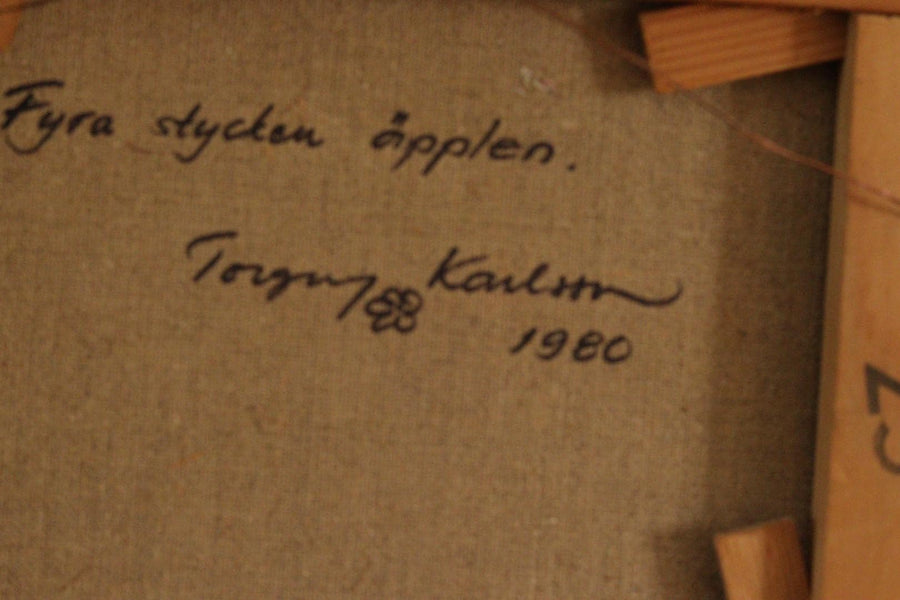 Fyra stycken äpplen.
Torgny Karlsson
1980